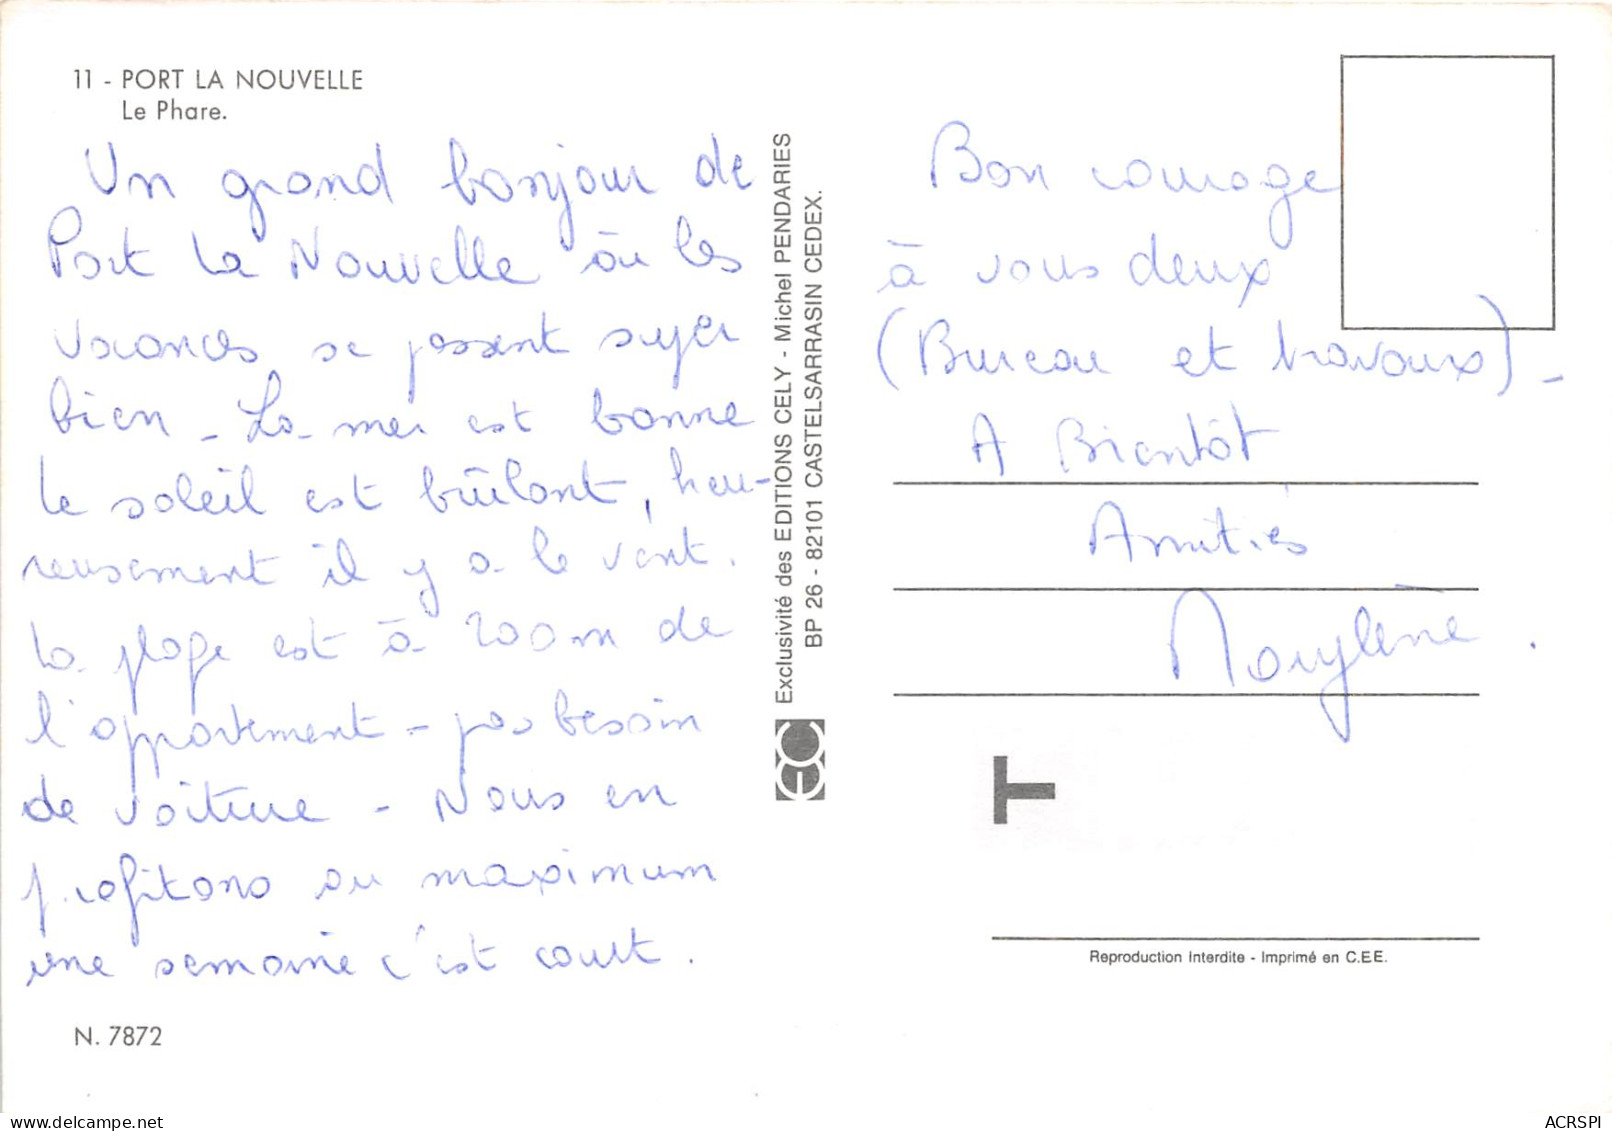 11 - PORT LA NOUVELLE
Le Phare.
Un grand bonjour de
Port La Nouvelle où les
vacances se passent super
bien - La mer est bonne
le soleil est brûlant, heu-
reusement il y a le vent.
La plage est à 200m de
l'appartement - pas besoin
de voiture - Nous en
profitons au maximum
une semaine c'est court.
N. 7872
Exclusivité des EDITIONS CELY - Michel PENDARIES
BP 26 - 82101 CASTELSARRASIN CEDEX.
Bon courage
à vous deux
(Bureau et travaux) -
A Bientôt
Amitiés
Marylène.
T
Reproduction Interdite - Imprimé en C.E.E.
ACRSPI